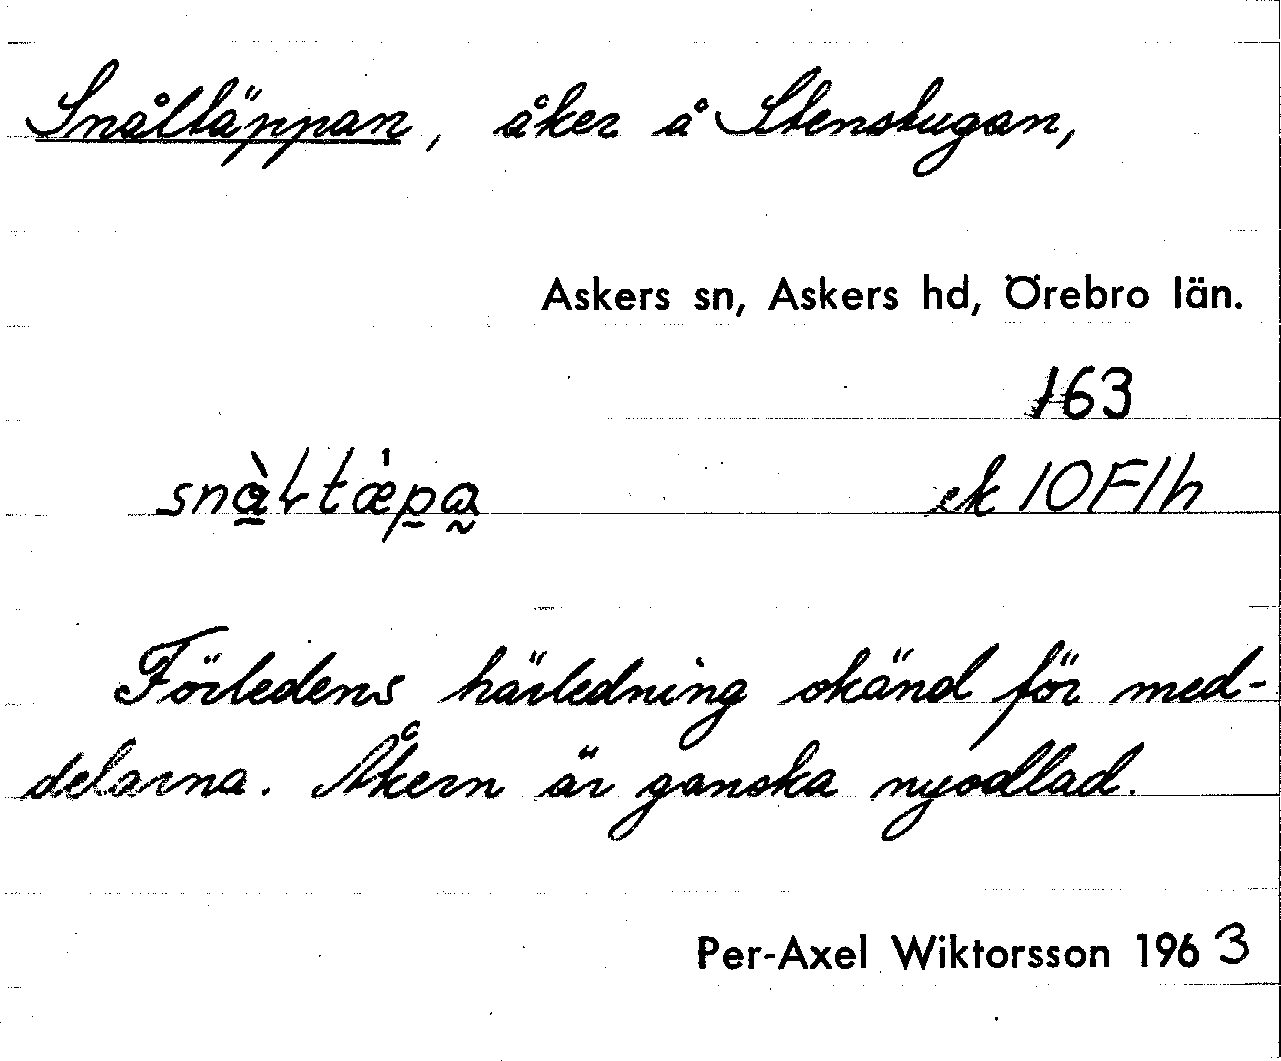 Snåltäppan, åker å Stenstugan,
Askers sn, Askers hd, Örebro län.
163
ek 10F1h
Förledens härledning okänd för med-
delarna. Åkern är ganska nyodlad.
Per-Axel Wiktorsson 1963